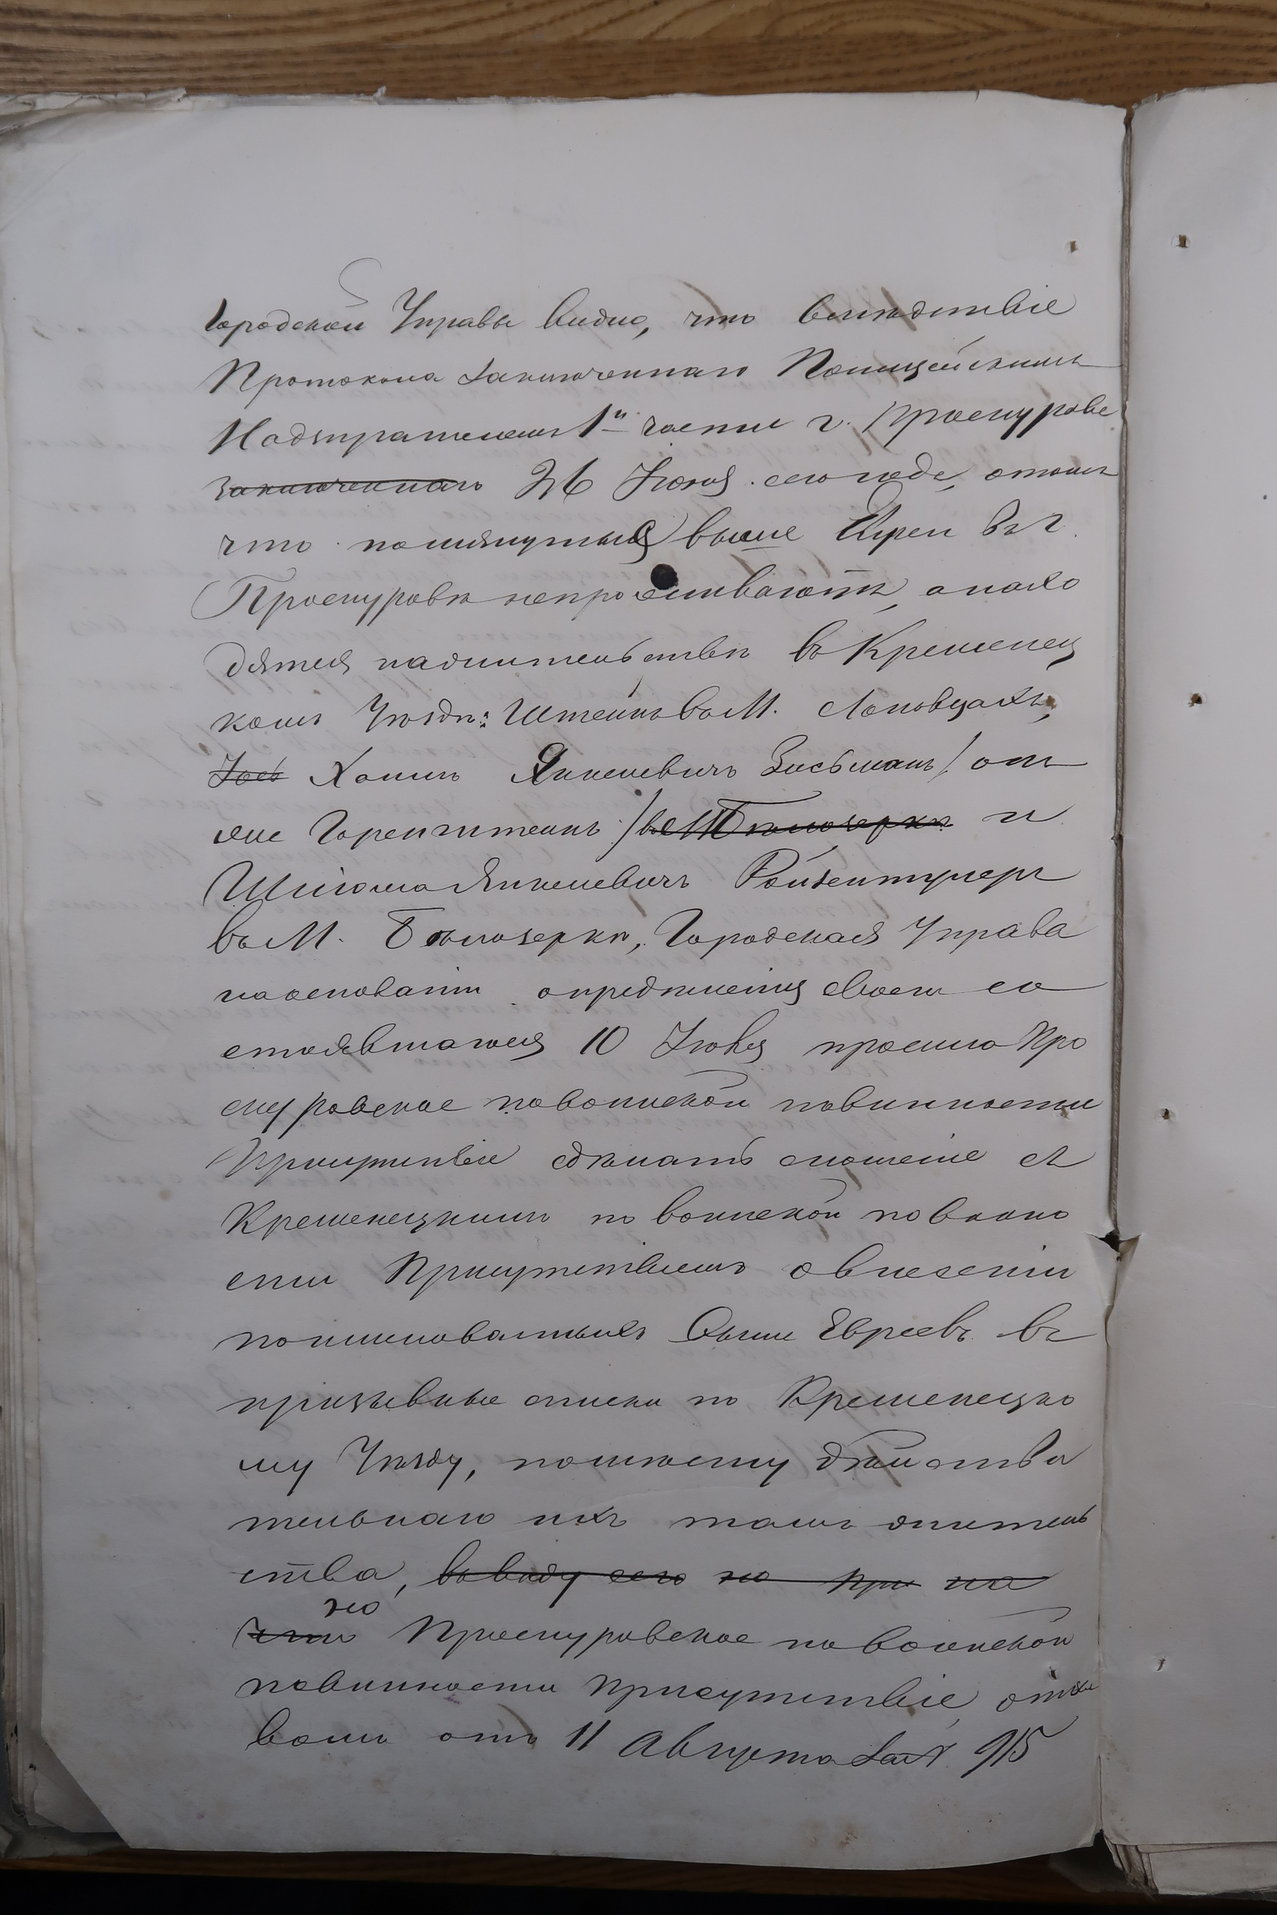 Городской Управы видно, что вследствіе
Протокола Заключеннаго Полицейскимъ
Надзирателемъ 1й части г. Проскурова
заключеннаго 26 Іюня сего года, о томъ
что помянутые выше Евреи въ г.
Проскуровѣ непроживаютъ, а нахо
дятся на жительствѣ въ Кременец
комъ Уѣздѣ: Штейнъ въ М. Лановцахъ,
Хаимъ Янкелевичъ Зисьманъ /онъ
же Горенштейнъ/ въ М Бѣлозеркѣ и
Шлiома Янкелевичъ
въ М. Бѣлозеркѣ, Городская Управа
на основаніи опредѣленія своего со
стоявшагося 10 Іюля просила Про
скуровское по воинской повинности
Присутствіе сдѣлать сношеніе съ
Кременецкимъ по воинской повинно
сти Присутствіемъ о внесеніи
поименованныхъ выше Евреевъ въ
призывные списки по Кременецко
му Уѣзду, по мѣсту дѣйстви
тельнаго ихъ тамъ жительь
ства, въ виду сего но при на
что но Проскуровское по воинской
повинности Присутствіе отзы
вомъ отъ 11 Августа за № 915